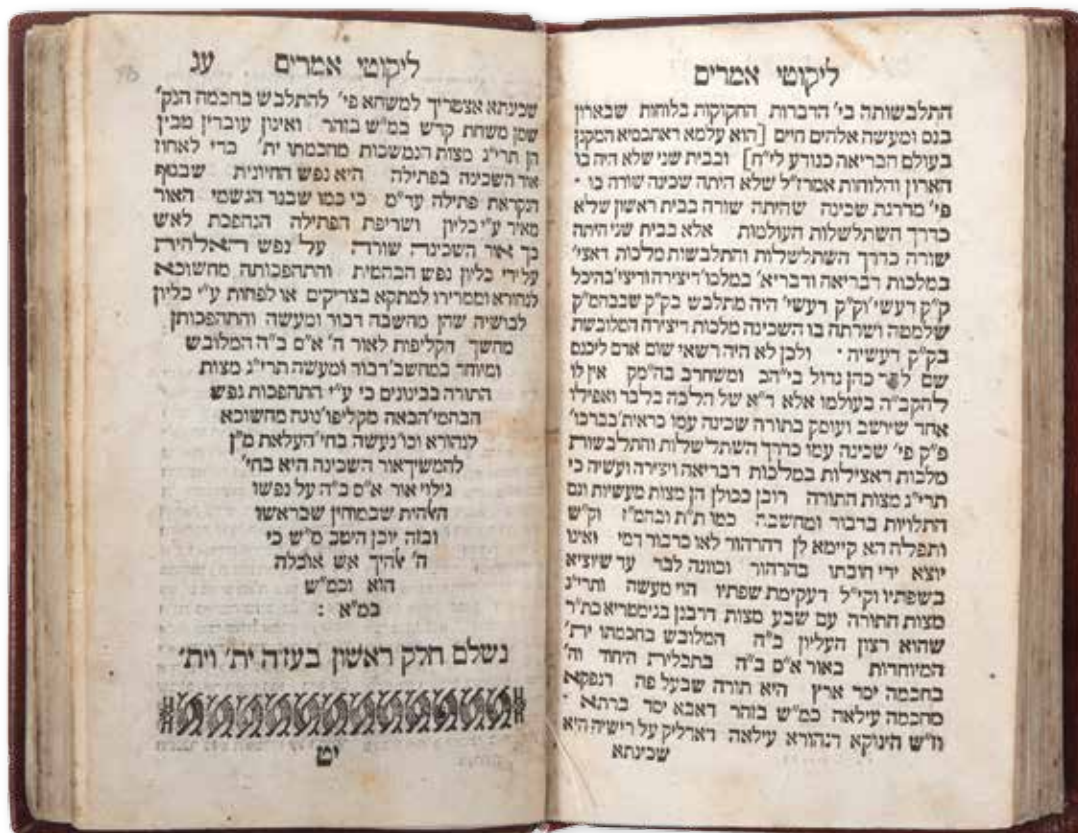 ליקוטי אמרים
התלבשותה בי' הדברות החקוקות בלוחות שבארון
בנס ומעשה אלהים חיים [הוא עלמא דאתכסיא המקנן
בעולם הבריאה כנודע לי"ח] ובבית שני שלא היה בו
הארון והלוחות אמרז"ל שלא היתה שכינה שורה בו ·
פי' מדרגת שכינה שהיתה שורה בבית ראשון שלא
כדרך השתלשלות העולמות אלא בבית שני היתה
שורה כדרך השתלשלות והתלבשות מלכות דאצי'
במלכות דבריאה ודבריא' במלכו' דיצירה ודיצי' בהיכל
ק"ק דעשי' וק"ק דעשי' היה מתלבש בק"ק שבבהמ"ק
שלמטה ושרתה בו השכינה מלכות דיצירה המלובשת
בק"ק דעשיה · ולכן לא היה רשאי שום אדם ליכנס
שם כהן גדול ביי"הכ ומשחרב בה"מק אין לו
להקב"ה בעולמו אלא ד"א של הלכה בלבד ואפילו
אחד שיושב ועוסק בתורה שכינה עמו כדאית' בברכו'
פ"ק פי' שכינה עמו כדרך השתלשלות והתלבשות
מלכות דאצילות במלכות דבריאה ויצירה ועשיה כי
תרי"ג מצות התורה רובן ככולן הן מצות מעשיות וגם
התלויות בדבור ומחשבה כמו ת"ת ובהמ"ז וק"ש
ותפלה הא קיימא לן דהרהור לאו כדבור דמי ואינו
יוצא ידי חובתו בהרהור וכוונה לבד עד שיוציא
בשפתיו וקי"ל דעקימת שפתיו הוי מעשה ותרי"ג
מצות התורה עם שבע מצות דרבנן בגימטריא כת"ר
שהוא רצון העליון ב"ה המלובש בחכמתו ית'
המיוחדות באור א"ס ב"ה בתכלית היחוד וה'
בחכמה יסד ארץ היא תורה שבעל פה דנפקא
מחכמה עילאה כמ"ש בזהר דאבא יסד ברתא ·
וז"ש הינוקא דנהורא עילאה דאדליק על רישיה היא
שכינתא
ליקוטי אמרים עג
שכינתא אצטריך למשחא פי' להתלבש בחכמה הנק'
שמן משחת קדש כמ"ש בזהר ואינון עובדין טבין
הן תרי"ג מצות הנמשכות מחכמתו ית' כדי לאחוז
אור השכינה בפתילה היא נפש החיונית שבגוף
הנקראת פתילה עד"מ כי כמו שבנר הגשמי האור
מאיר ע"י כליון ושריפת הפתילה הנהפכת לאש
כך אור השכינה שורה על נפש האלהית
על ידי כליון נפש הבהמית והתהפכותה מחשוכא
לנהורא וממרירו למתקא בצדיקים או לפחות ע"י כליון
לבושיה שהן מחשבה דבור ומעשה והתהפכותן
מחשך הקליפות לאור ה' א"ס ב"ה המלובש
ומיוחד במחשב' דבור ומעשה תרי"ג מצות
התורה בבינונים כי ע"י התהפכות נפש
הבהמי' הבאה מקליפו' נוגה מחשוכא
לנהורא וכו' נעשה בחי' העלאת מ"ן
להמשיך אור השכינה היא בחי'
גילוי אור א"ס ב"ה על נפשו
האלהית שבמוחין שבראשו
ובזה יובן היטב מ"ש כי
ה' אלהיך אש אוכלה
הוא וכמ"ש
במ"א :
נשלם חלק ראשון בעזה ית' וית'
יט